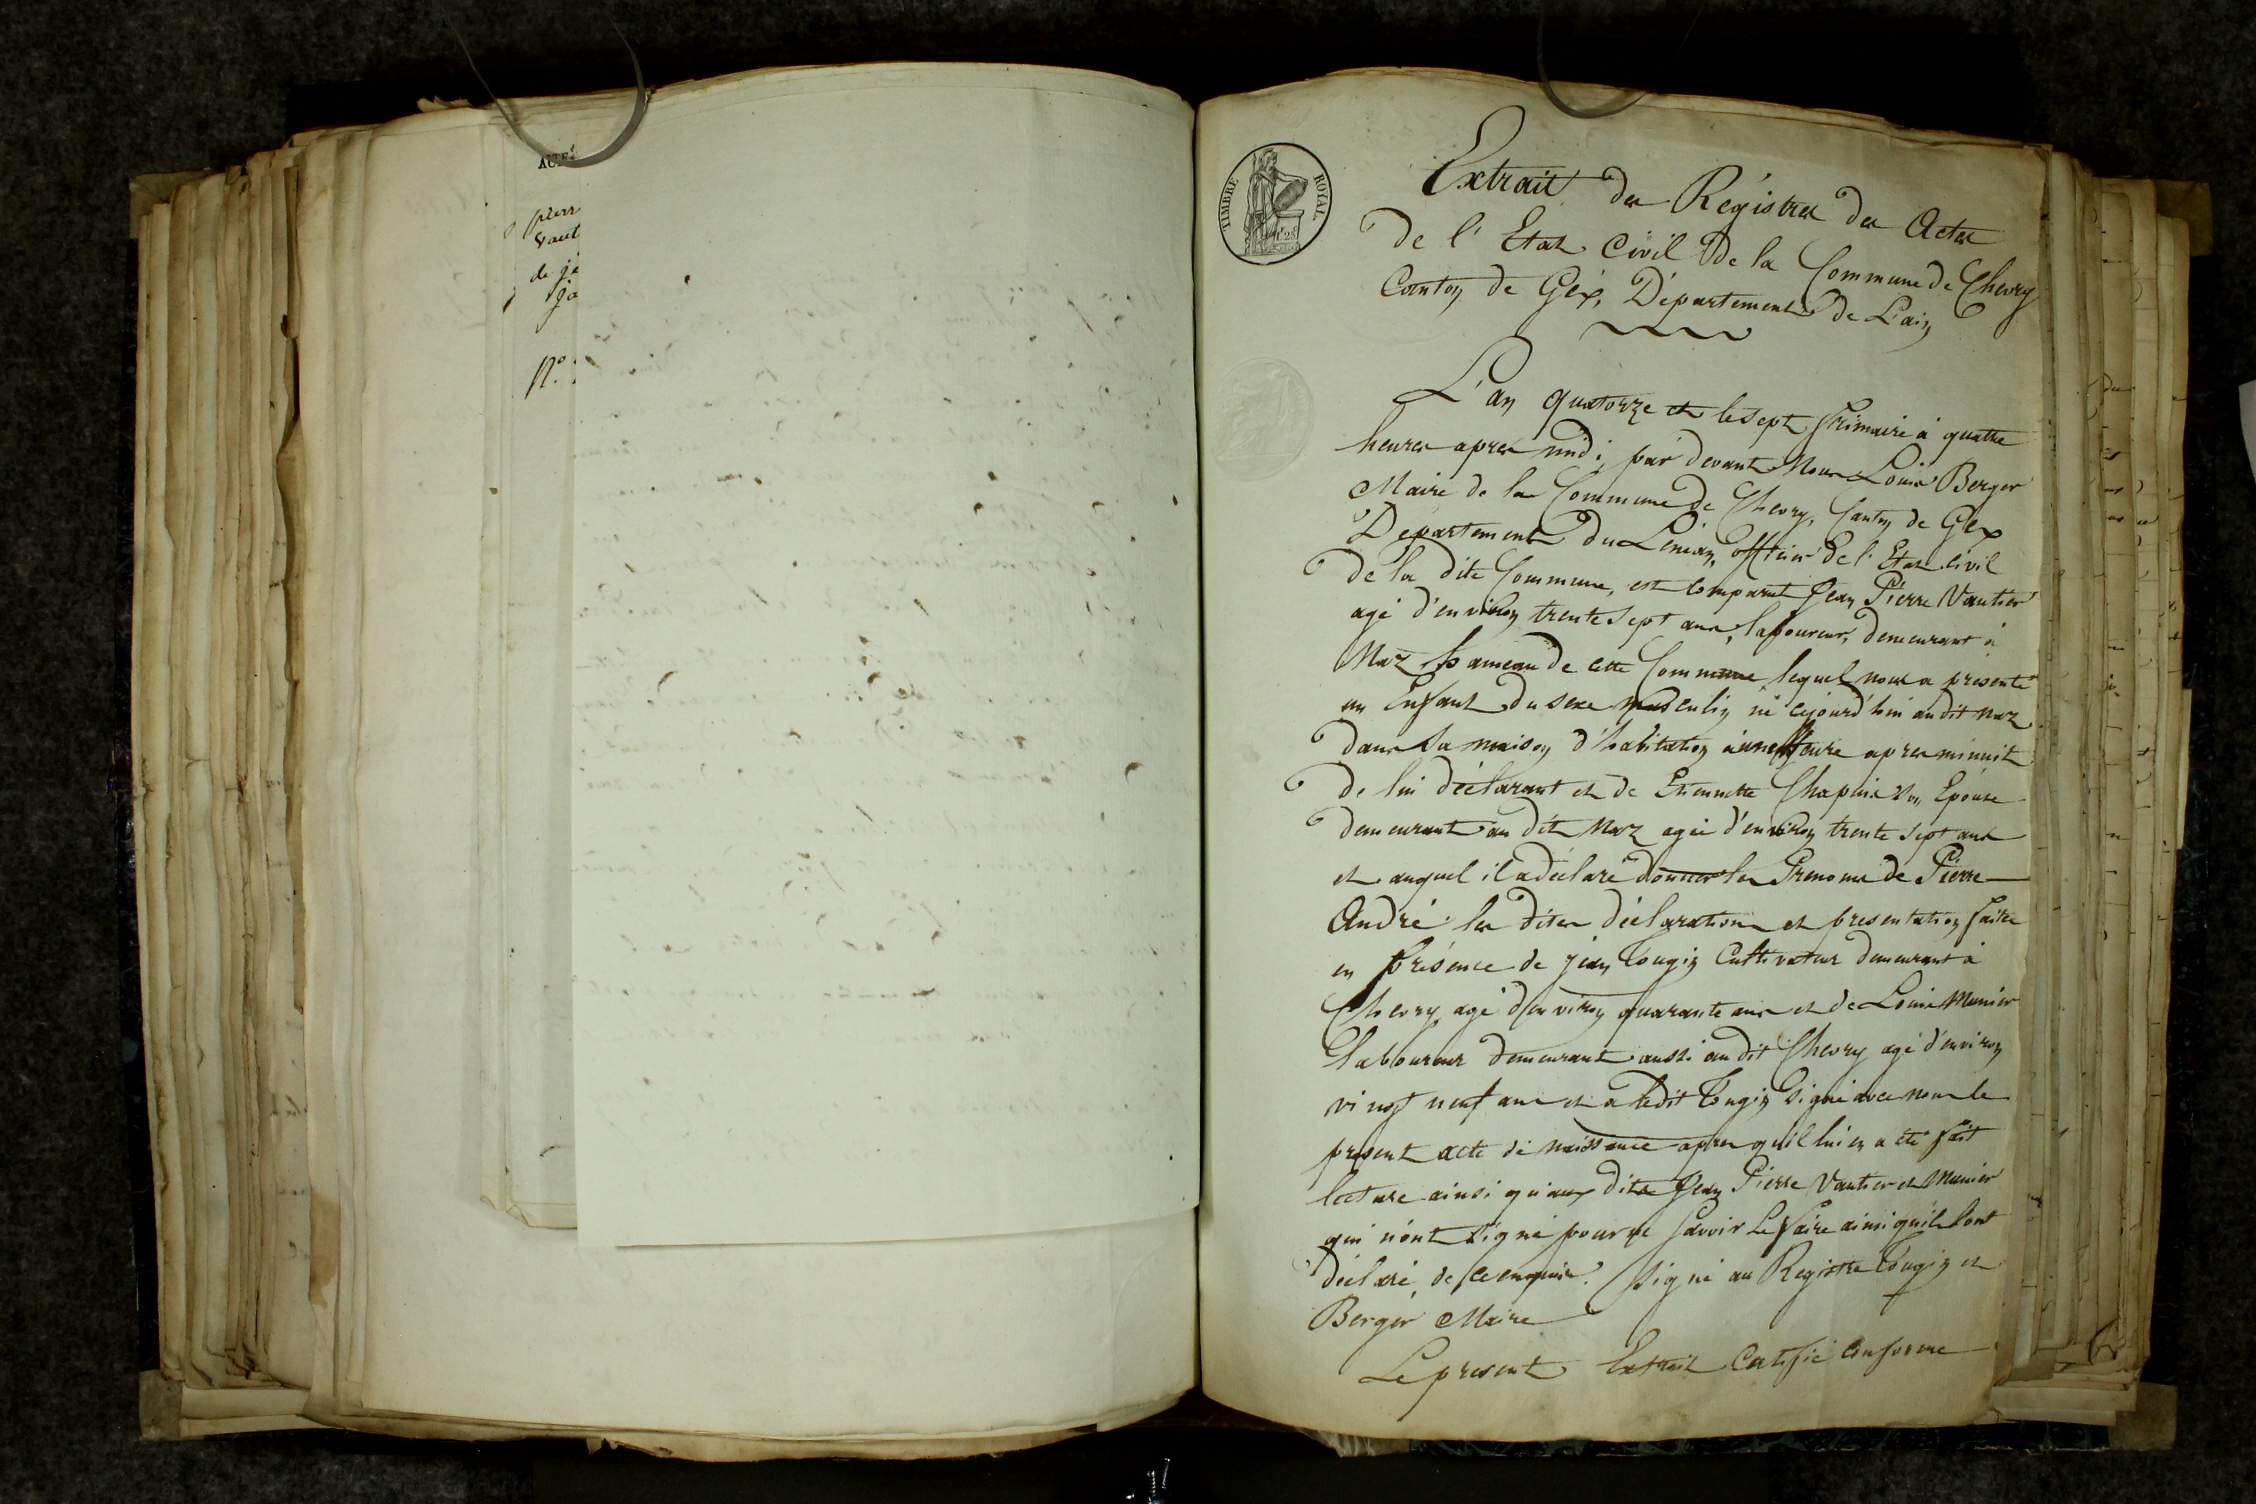 ACTE
pierr
vaut
de je
ja
N.º
TIMBRE ROYAL
Extrait des Régistres des Actes
de l'Etat Civil de la Commune de Chevry
Canton de Gex, Département de L'ain
L'an quatorze et le sept frimaire à quatre
heures apres midi, par devant Nous Louis Berger
Maire de la Commune de Chevry, Canton de Gex
Departement du Léman, officier de l'Etat civil
de la dite Commune, est comparut Jean Pierre Vautier
agé d'environ trente sept ans, laboureur, demeurant à
Naz hameau de cette Commune lequel nous a présenté
un Enfant du sexe masculin né cejourd'hui au dit Naz
dans sa maison d'habitation à une heure apres minuit
de lui déclarant et de Etiennette Chapuis son Epouse
demeurant au dit Naz agée d'environ trente sept ans
et auquel il a déclaré donner les Prenoms de Pierre
André les dites déclaration et presentation faites
en présence de jean Tougin Cultivateur demeurant à
Chevry agé d'environ quarante ans et de Louis Munier
laboureur demeurant aussi au dit Chevry agé d'environ
vingt neuf ans et a ledit Tougin Signé avec nous le
présent acte de naissance apres qu'il lui en a été fait
lecture ainsi qu'aux dits Jean Pierre Vautier et Munier
qui n'ont signé pour ne savoir Le faire ainsi qu'ils l'ont
déclaré, de ce enquis. Signé au Registre Tougin et
Berger Maire
Le présent Extrait Certifié conforme